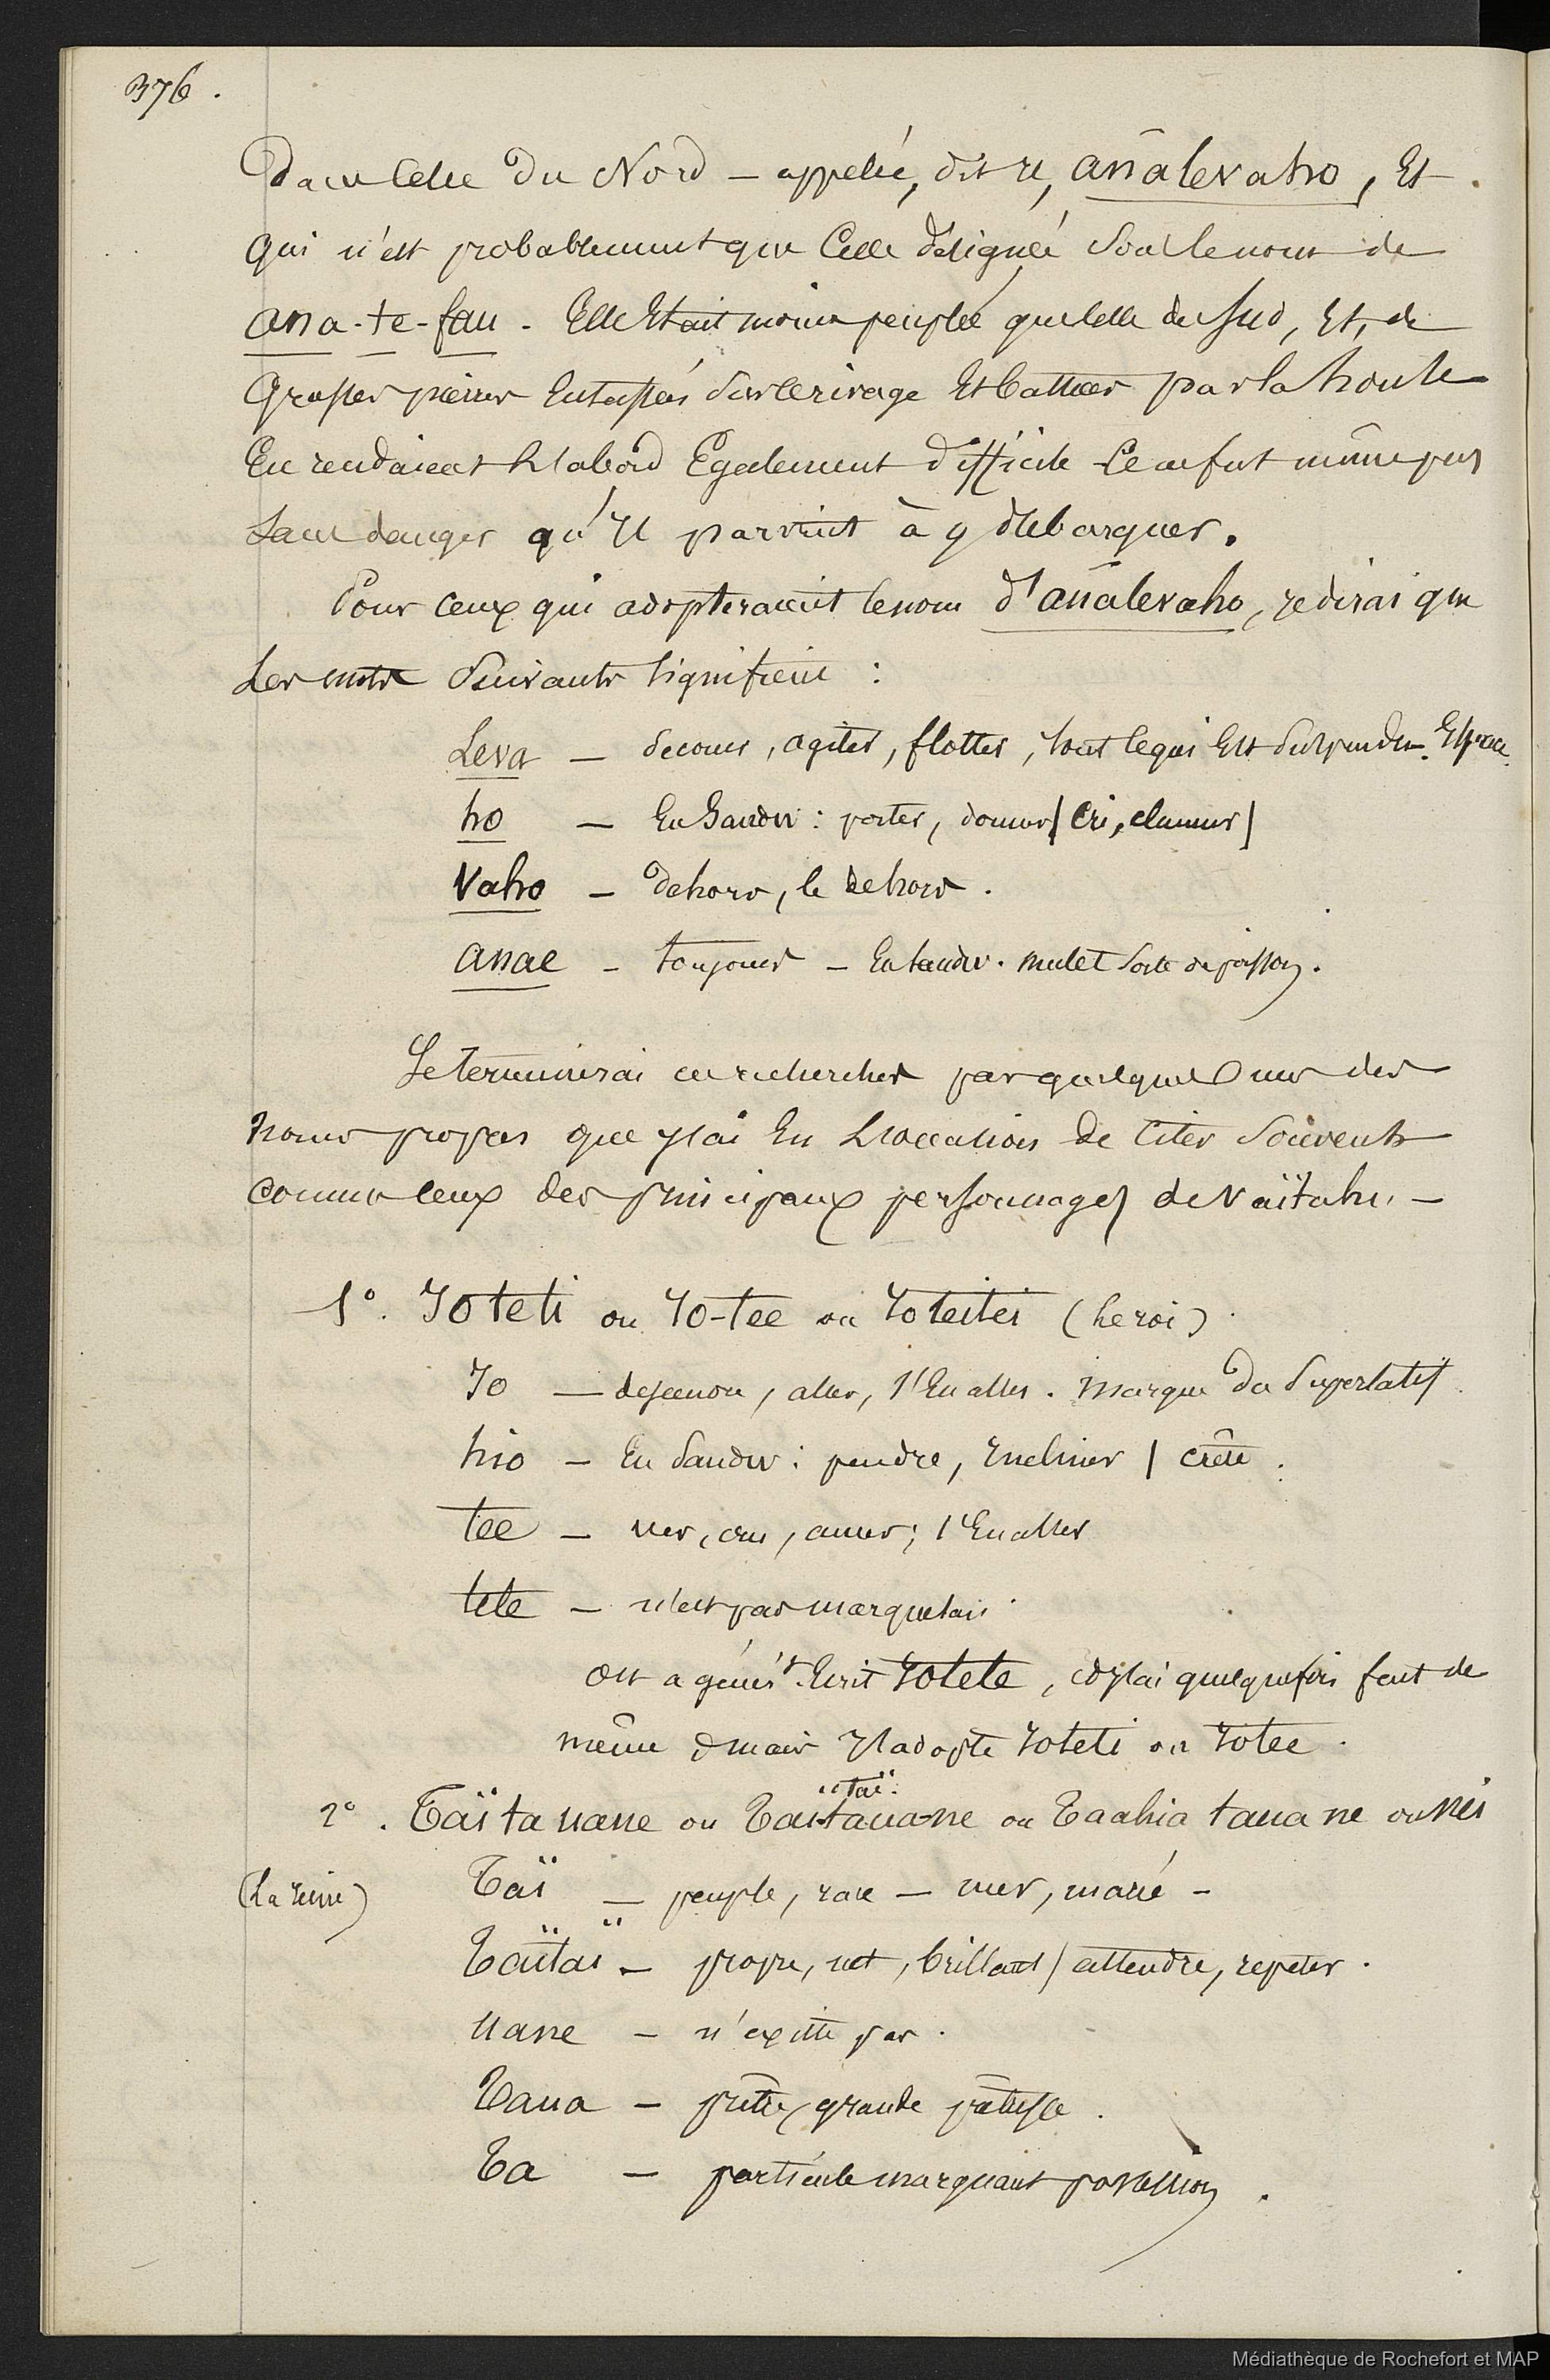 376.
Dans celle du Nord — appelée, dit il, anālevaho, Et
qui n'est probablement que celle désignée sous le nom de
ana-te-fau. Elle était moins peuplée que celle du Sud, Et, de
grosses pierres Entassées sur le rivage Et battues par la houle
En rendaient l'abord Egalement difficile. Ce ne fut même pas
sans danger qu'il parvint à y débarquer.
Pour ceux qui adopteraient le nom d'anālevaho, je dirai que
les mots suivants signifient :
Leva — secouer, agiter, flotter, tout ce qui Est suspendu. Espace.
ho — En Sandw : porter, donner / cri, clameur /
Vaho — Dehors, le dehors.
anae — toujours — En Sandw. mulet sorte de poisson.
Je terminerai ces recherches par quelques uns des
noms propres que j'ai Eu l'occasion de citer souvent
comme ceux des principaux personnages de Vaïtahu. —
1°. Ioteti ou Io-tee ou Ioteitei (le roi)
Io — aller, s'En aller. marque du Superlatif
hio — En Sandw : pendre, incliner / crête.
tee — aller ; s'En aller
tete — n'est pas marquésan.
On a génért. Ecrit Iotete, et j'ai quelquefois fait de
même mais j'adopte Ioteti ou Iotee.
2°. Taïtauane ou Taitauane ou Taahia tauane ou nei
"taï.
(La reine) Taï — peuple, race — mer, marée —
Taïtaï — propre, net, brillant / attendre, repeter.
uane — n'existe pas.
Taua — prêtre, grande prêtresse.
Ta — particule marquant possession.
Médiathèque de Rochefort et MAP